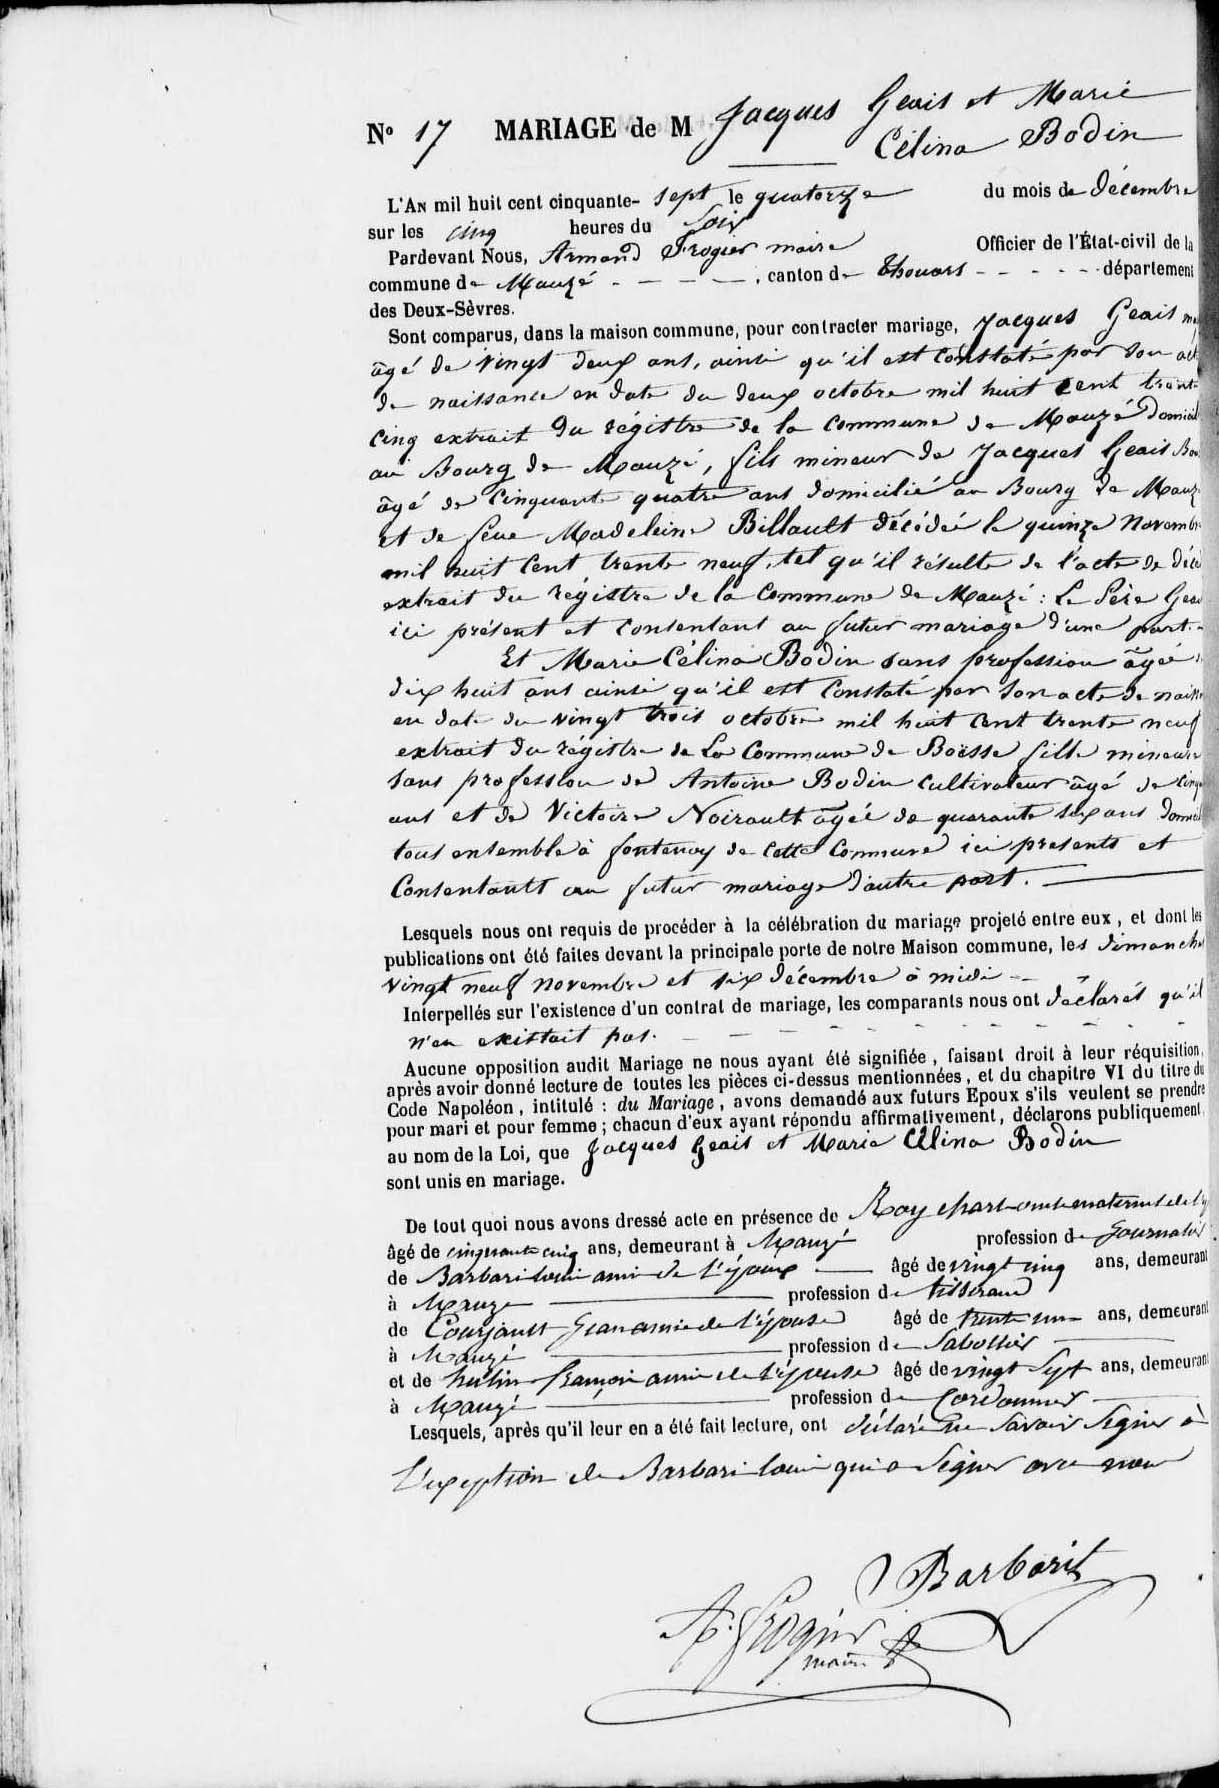 N° 17 MARIAGE de M Jacques Geais et Marie
Célina Bodin
L'AN mil huit cent cinquante- sept le quatorze du mois de décembre
sur les cinq heures du Soir
Pardevant Nous, Armand Frogier maire Officier de l'État-civil de la
commune de Mauzé - - - - , canton de Thouars - - - - - département
des Deux-Sèvres.
Sont comparus, dans la maison commune, pour contracter mariage, Jacques Geais
âgé de vingt deux ans, ainsi qu'il est constaté par son
de naissance en date du deux octobre mil huit cent trente
cinq extrait du régistre de la commune de Mauzé domicil
au Bourg de Mauzé, fils mineur de Jacques Geais
âgé de cinquante quatre ans domicilié au Bourg de Mauz
et de feue Madeleine Billault décédée le quinze Novembre
mil huit Cent trente neuf, tel qu'il résulte de l'acte de déc
extrait du régistre de la Commune de Mauzé : Le Père Geai
ici présent et consentant au futur mariage d'une part.
Et Marie Célina Bodin sans profession âgée
dix huit ans ainsi qu'il est Constaté par son acte de naiss
en date du vingt trois octobre mil huit Cent trente neuf
extrait du régistre de La Commune de Boësse fille mineure
sans profession de Antoine Bodin Cultivateur âgé de cinq
ans et de Victoire Noirault âgée de quarante six ans domicil
tous ensemble à fontenay de cette Commune ici presents et
Consentants au futur mariage d'autre part.
Lesquels nous ont requis de procéder à la célébration du mariage projeté entre eux, et dont les
publications ont été faites devant la principale porte de notre Maison commune, les dimanches
vingt neuf novembre et six décembre à midi -
Interpellés sur l'existence d'un contrat de mariage, les comparants nous ont déclarés qu'il
n'en existait pas.
Aucune opposition audit Mariage ne nous ayant été signifiée, faisant droit à leur réquisition,
après avoir donné lecture de toutes les pièces ci-dessus mentionnées, et du chapitre VI du titre du
Code Napoléon, intitulé : du Mariage, avons demandé aux futurs Epoux s'ils veulent se prendre
pour mari et pour femme ; chacun d'eux ayant répondu affirmativement, déclarons publiquement,
au nom de la Loi, que Jacques Geais et Marie Célina Bodin
sont unis en mariage.
De tout quoi nous avons dressé acte en présence de Roy oncle maternel de
âgé de cinquante cinq ans, demeurant à Mauzé profession de Journalier
de Barbari Louis ami de l'époux âgé de vingt cinq ans, demeurant
à Mauzé profession de tisserand
de Courjault Jean ami de l'épouse âgé de trente un ans, demeurant
à Mauzé profession de Sabottier
et de hulin françois ami de l'épouse âgé de vingt Sept ans, demeurant
à Mauzé profession de Cordonnier
Lesquels, après qu'il leur en a été fait lecture, ont déclaré ne Savoir Signer à
l'exception de Barbari Louis qui a Signer avec nous
Barbarit
A. Frogier
maire